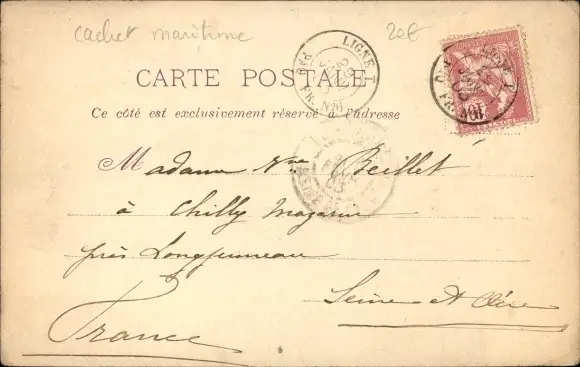 cachet maritime 20€
LIGNE T
PAQ. FR. Nº6
LIGNE T
PAQ. FR. Nº
CARTE POSTALE
Ce côté est exclusivement réservé à l'adresse
Madame Vve Beillet
à Chilly Mazarin
près Longjumeau
Seine et Oise
France